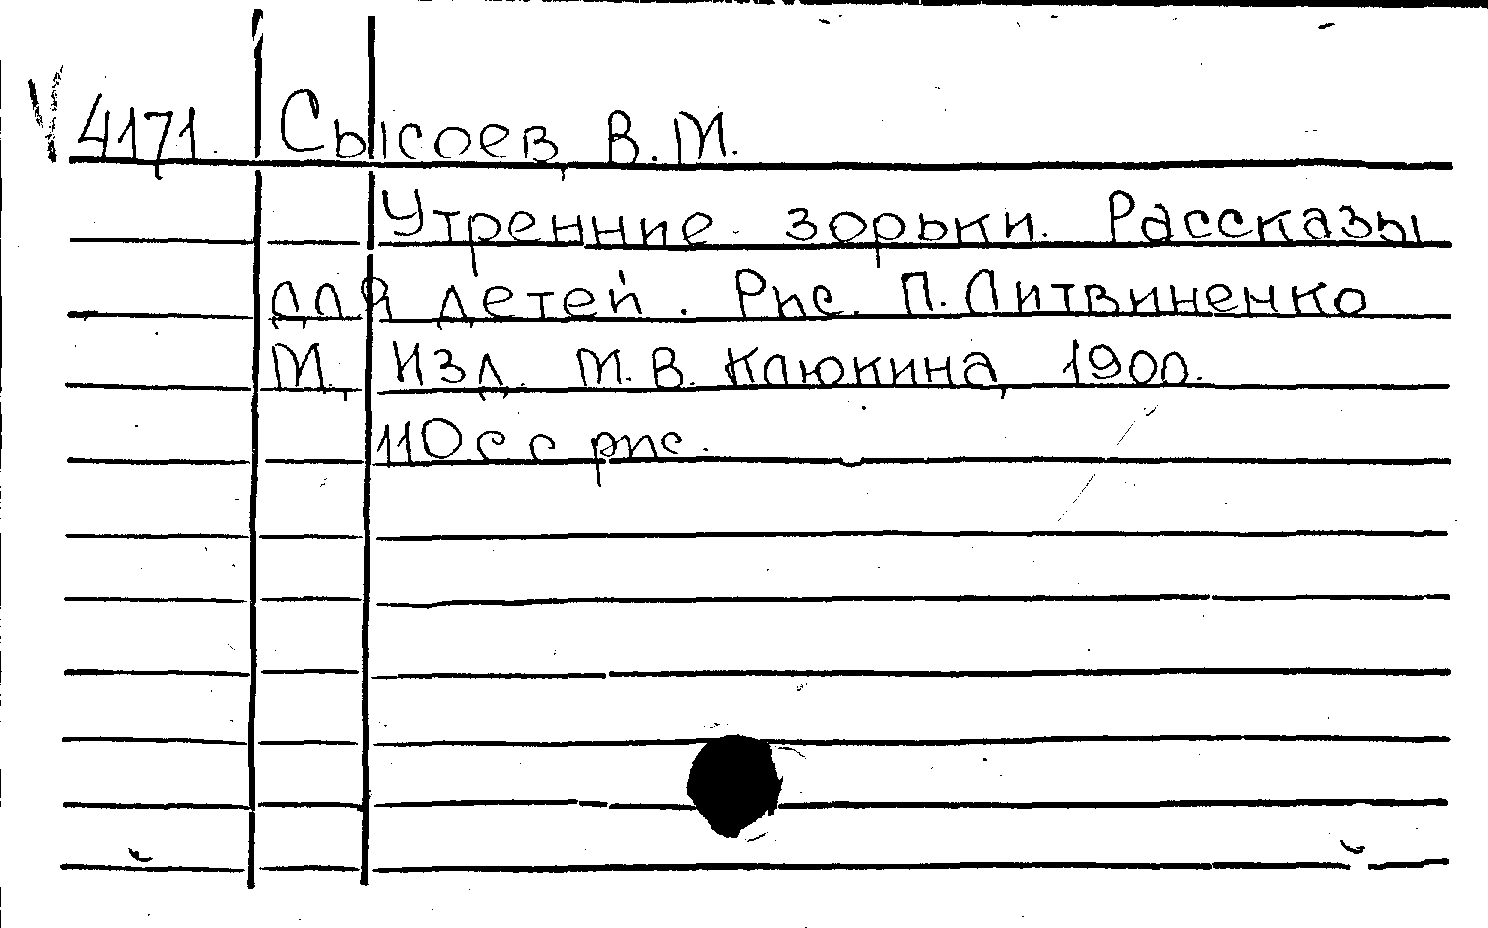 4171. Сысоев, В. М.
Утренние зорьки. Рассказы
для детей. Рис. П. Литвиненко
М., Изд. М. В. Клюкина, 1900.
110 с с рис.